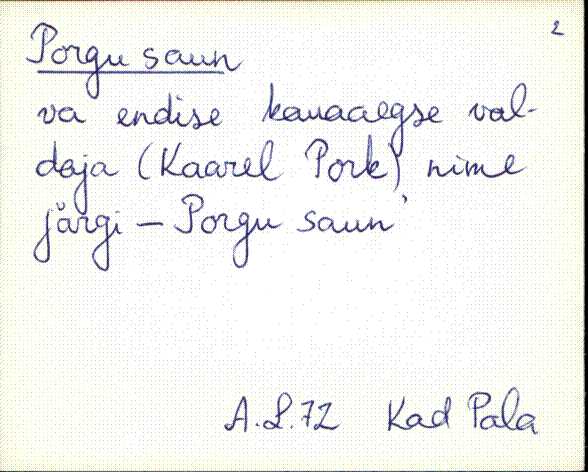 2
Porgu saun
va endise kauaaegse val-
daja (Kaarel Pork) nime
järgi – Porgu saun'
A.L.72 Kad Pala